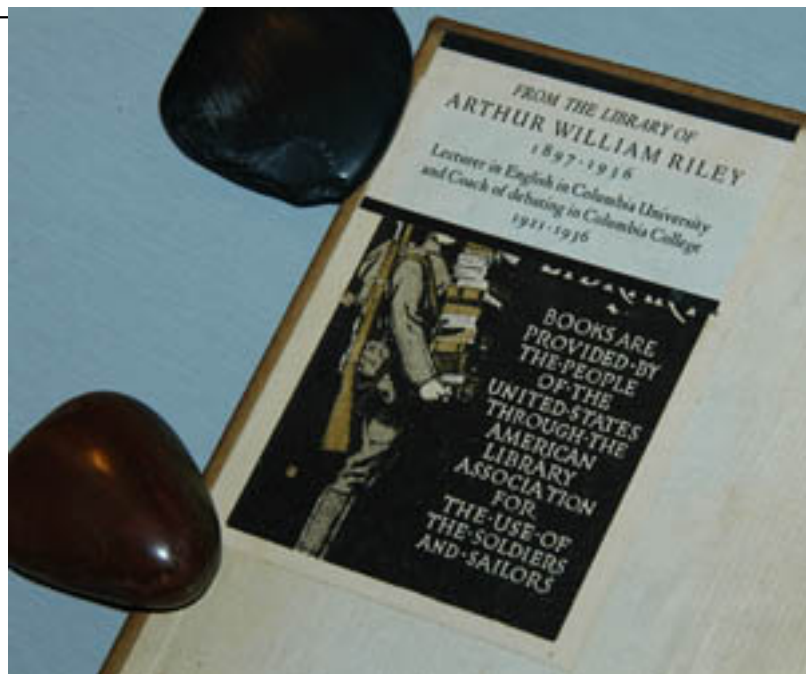 FROM THE LIBRARY OF
ARTHUR WILLIAM RILEY
1897·1936
Lecturer in English in Columbia University
and Coach of debating in Columbia College
1921·1936
BOOKS ARE
PROVIDED·BY
THE·PEOPLE
OF·THE
UNITED·STATES
THROUGH·THE
AMERICAN
LIBRARY
ASSOCIATION
FOR
THE·USE·OF
THE·SOLDIERS
AND·SAILORS